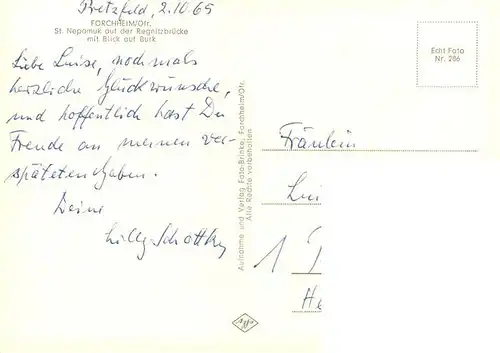 Pretzfeld, 2.10.65
FORCHHEIM/Ofr.
St. Nepomuk auf der Regnitzbrücke
mit Blick auf Burk
Liebe Luise, nochmals
herzliche Glückwünsche,
und hoffentlich hast Du
Freude an meinen ver-
späteten Gaben.
Deine
Lilly Schottky
Aufnahme und Verlag Foto-Brinke, Forchheim/Ofr.
Alle Rechte vorbehalten
Echt Foto
Nr. 286
Fräulein
Lui
1
He